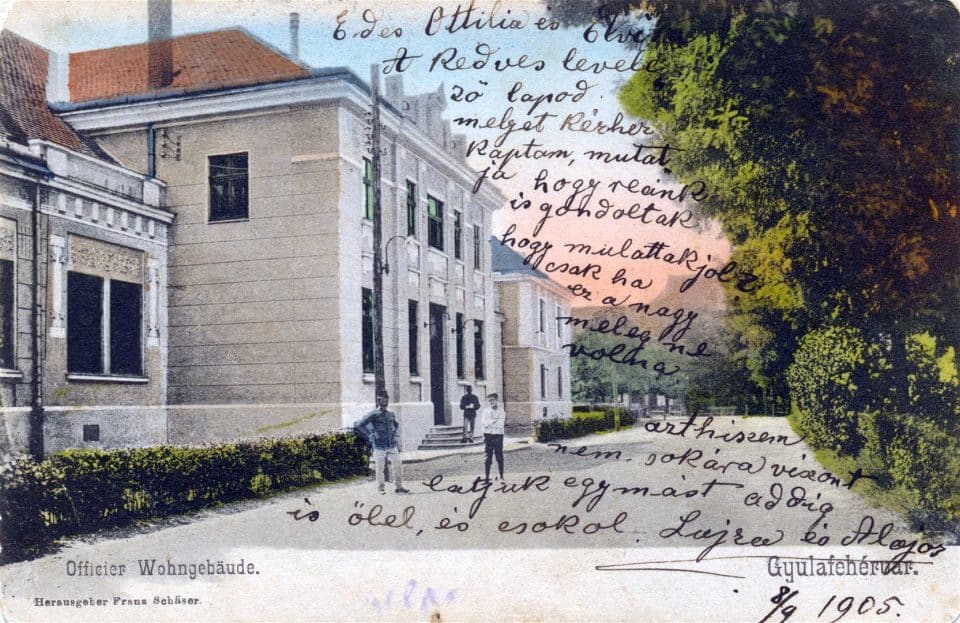 Edes Ottilia és Elvira
A Kedves levele
ző lapod
melyet Kézhez
Kaptam, mutat
ja hogy reánk
is gondoltak
hogy mulattak jolz
csak ha
ez a nagy
meleg ne
volna
azthiszem
nem sokára viszont
latjuk egymást addig
is ölel, és csokol. Lujza és Alajos
Officier Wohngebäude.
Gyulafehérvár.
Herausgeber Franz Schäser.
8/9 1905.